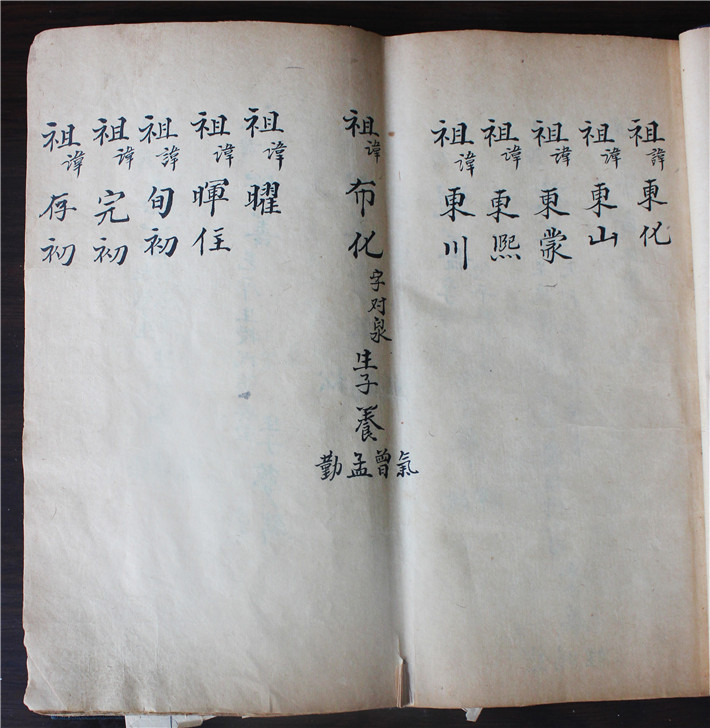 祖諱東化
祖諱東山
祖諱東蒙
祖諱東熙
祖諱東川
祖諱布化字对泉生子養
氣曾孟勤
祖諱曜
祖諱暉
祖諱旬初
祖諱完初
祖諱存初